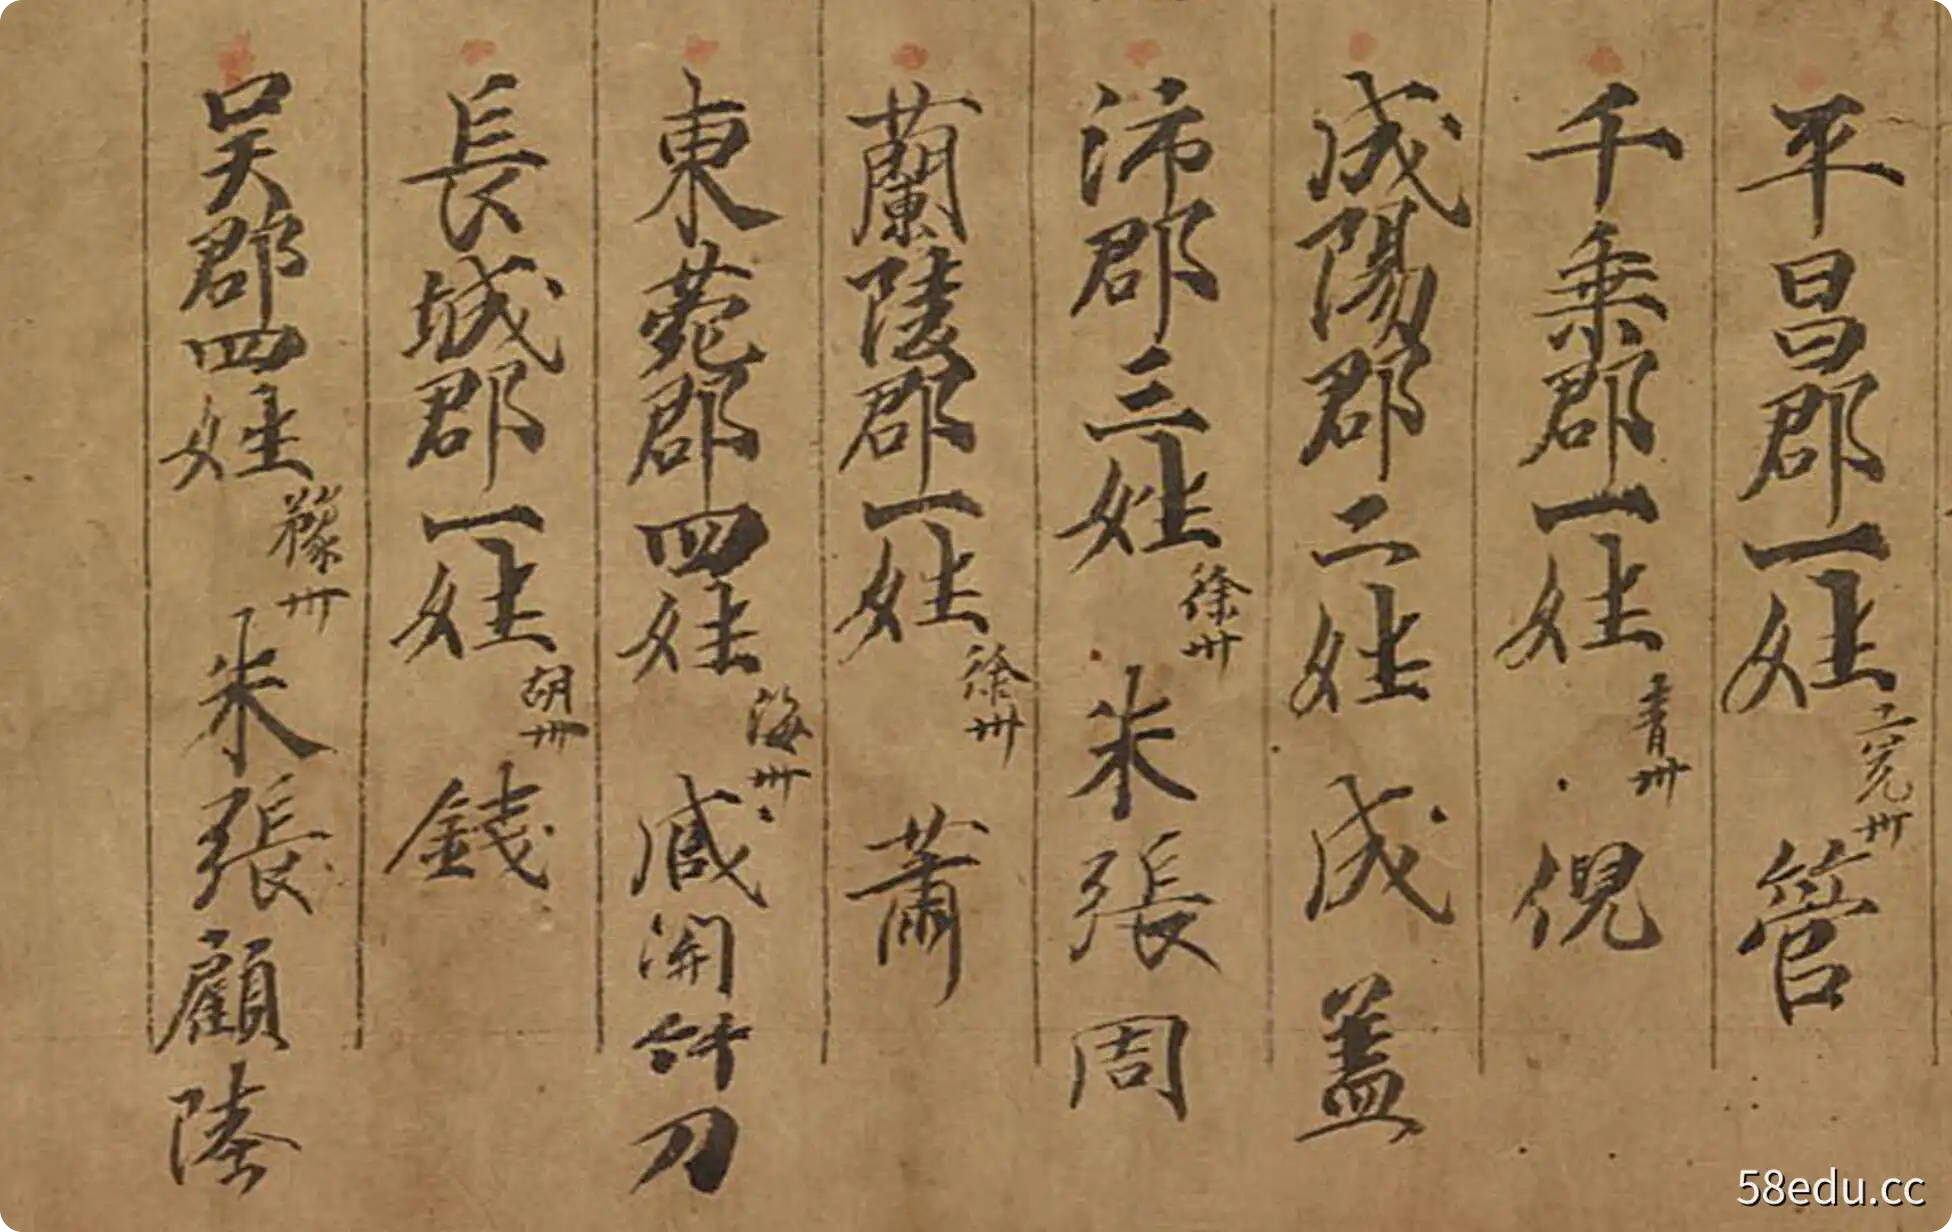 平昌郡一姓兖州 管
千乗郡一姓青州 倪
成陽郡二姓 成盖
沛郡三姓徐州 朱張周
蘭陵郡一姓徐州 蕭
東菀郡四姓海州 臧開竹刀
長城郡一姓胡州 錢
吴郡四姓蘇州 朱張顧陸
58edu.cc